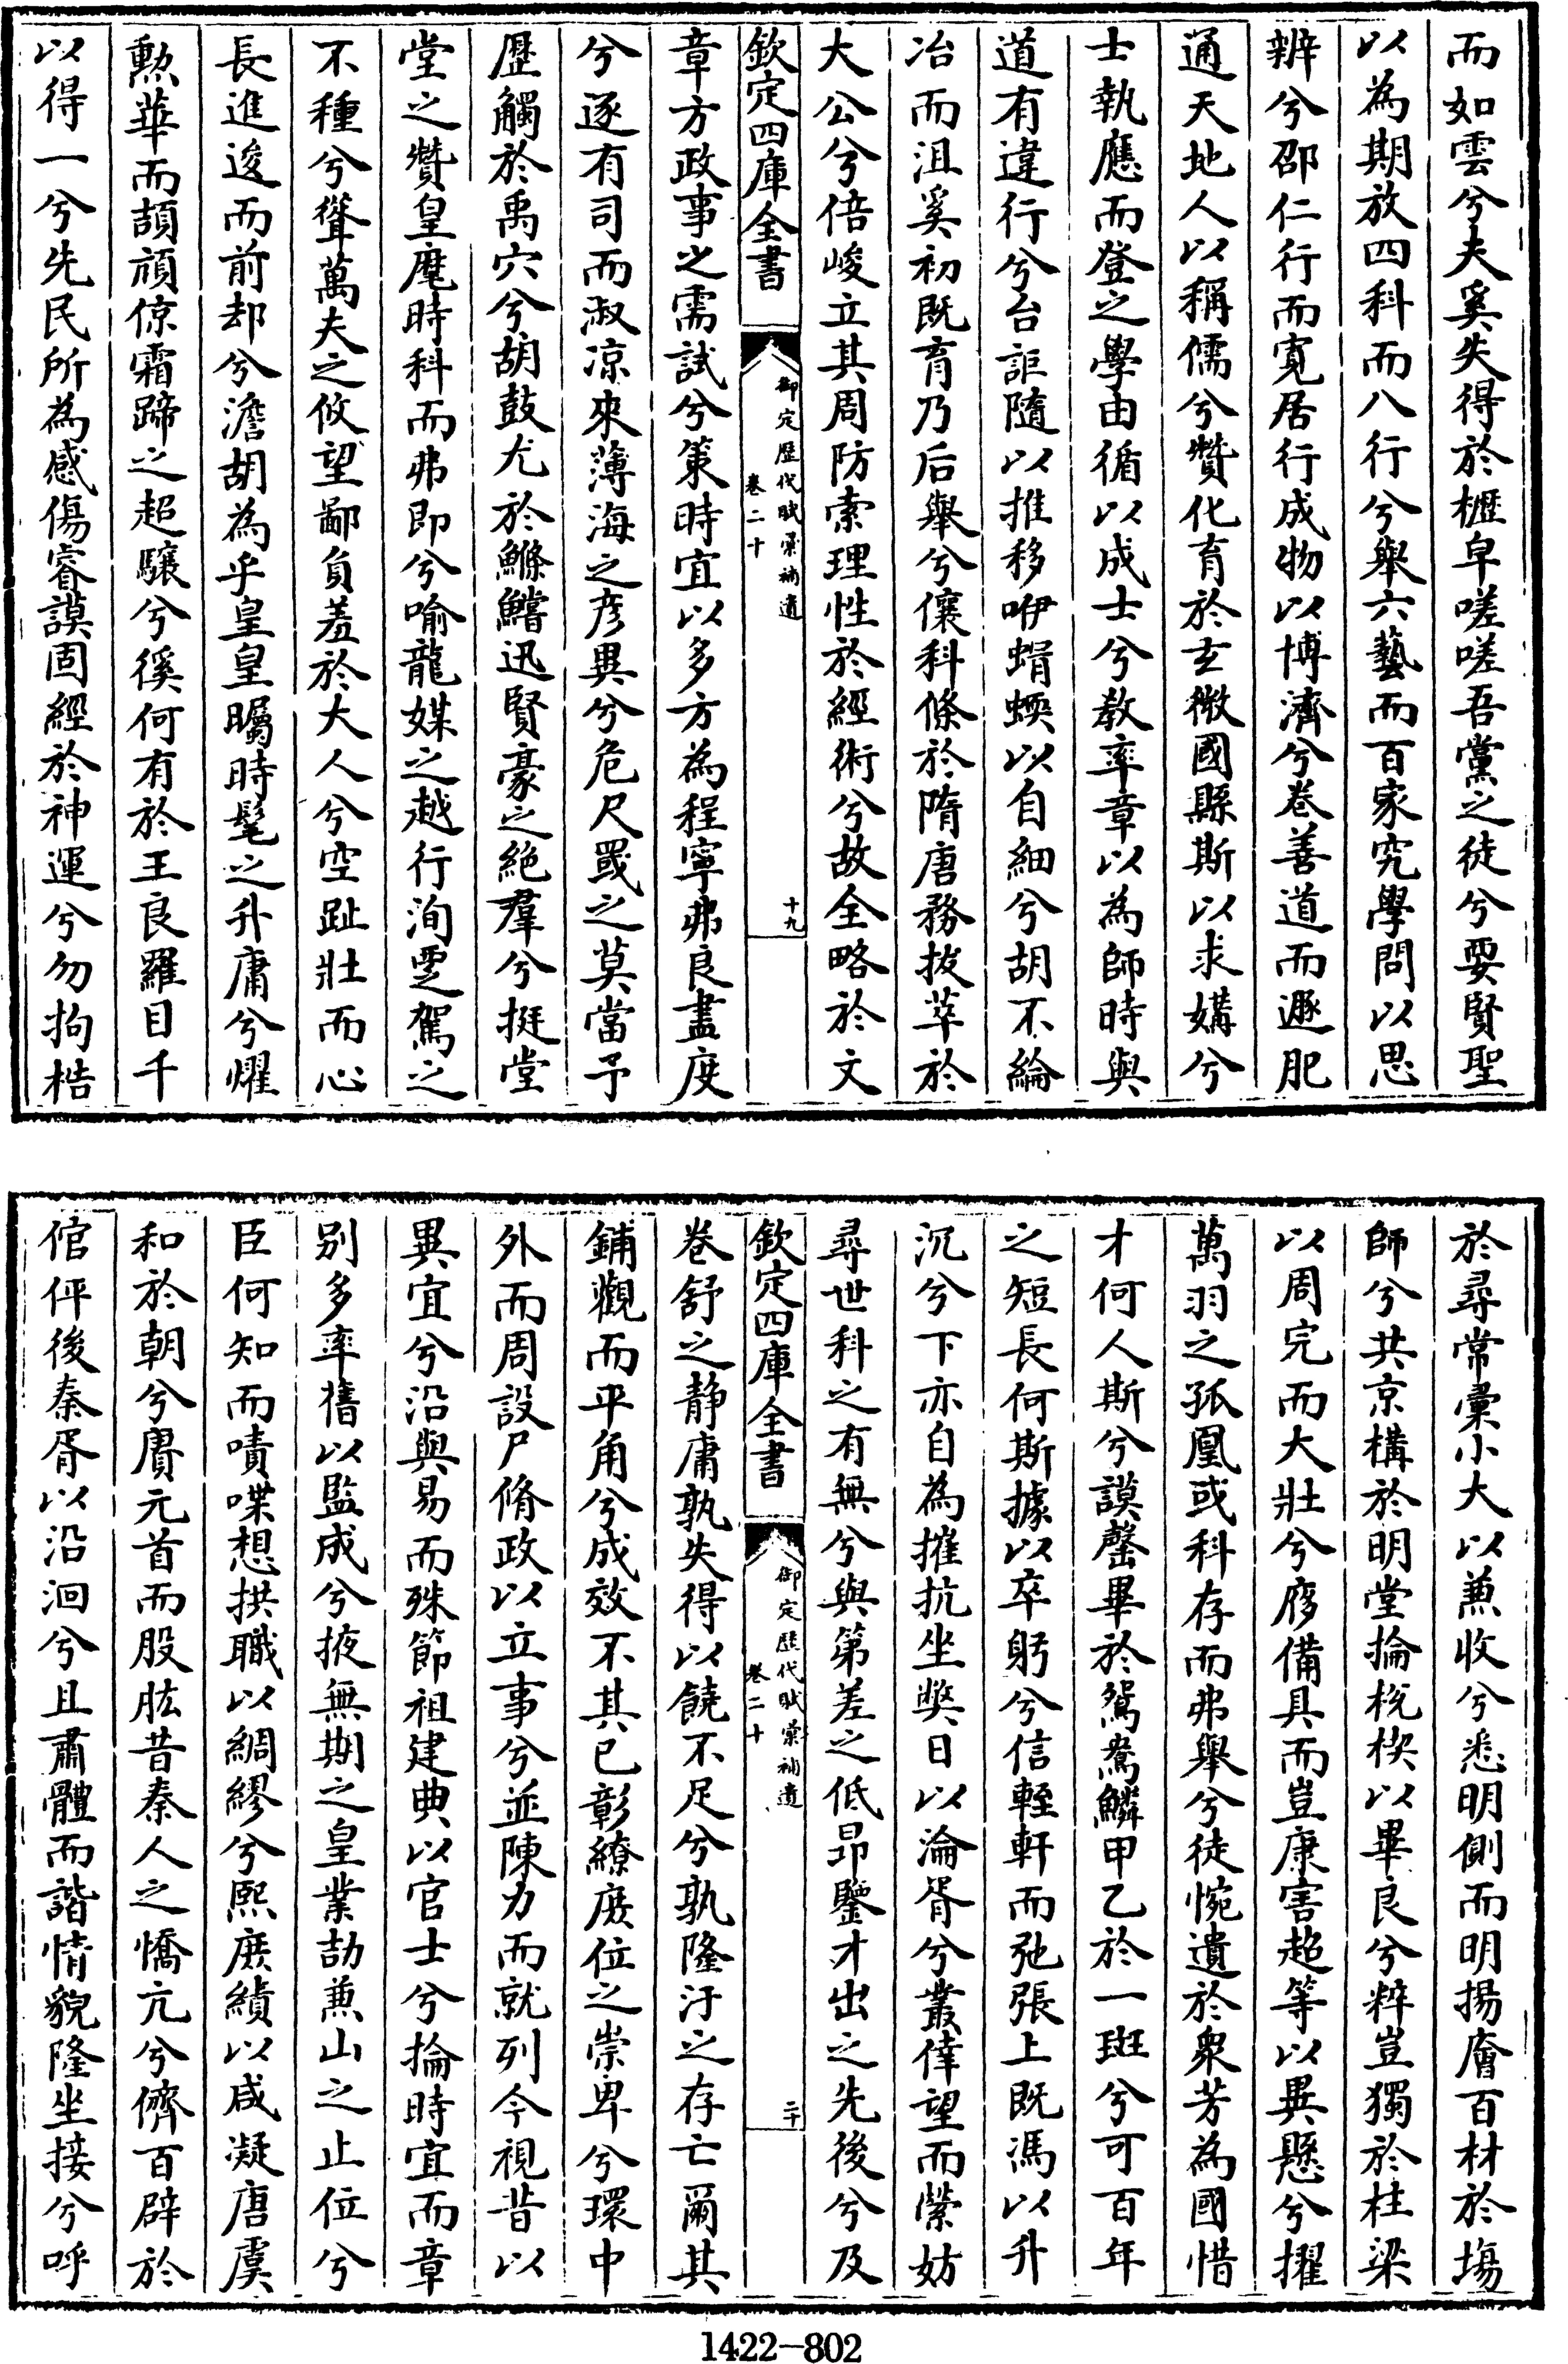 而如雲兮夫奚失得於櫪皁嗟嗟吾黨之徒兮要賢聖
以為期放四科而八行兮舉六藝而百家究學問以思
辨兮邵仁行而寛居行成物以博濟兮卷善道而遯肥
通天地人以稱儒兮贊化育於玄微國縣斯以求媾兮
士執應而登之學由循以成士兮教率章以為師時與
道有違行兮台詎隨以推移咿蜎蝡以自細兮胡不綸
冶而沮奚初既育乃后舉兮儴科條於隋唐務拔萃於
大公兮倍峻立其周防索理性於經術兮故全略於文
欽定四庫全書
御定歷代賦彙補遺
卷二十
十九
章方政事之需試兮策時宜以多方為程寧弗良盡度
兮逐有司而淑凉來薄海之彦異兮危尺罭之莫當予
歷觸於禹穴兮胡鼓尤於鰷鱨迅賢豪之絶羣兮挺堂
堂之贊皇麾時科而弗即兮喻龍媒之越行洵耍駕之
不種兮聳萬夫之攸望鄙負羞於大人兮空趾壯而心
長進逡而前却兮澹胡為乎皇皇矚時髦之升庸兮燿
勲華而頡頏倞霜蹄之超驤兮徯何有於王良羅目千
以得一兮先民所為感傷睿謨固經於神運兮勿拘梏
於尋常彙小大以兼收兮悉明側而明揚廥百材於塲
師兮共京構於明堂掄棁楔以畢良兮粹豈獨於柱梁
以周完而大壯兮庪備具而豈康害超等以異懸兮擢
萬羽之孤凰或科存而弗舉兮徒惋遺於衆芳為國惜
才何人斯兮謨罄畢於鴛鴦鱗甲乙於一斑兮可百年
之短長何斯據以卒躬兮信輊軒而弛張上既馮以升
沉兮下亦自為摧抗坐獘日以淪胥兮叢倖望而縈妨
尋世科之有無兮與第差之低昂鑒才出之先後兮及
欽定四庫全書
御定歷代賦彙補遺
卷二十
二十
卷舒之靜庸孰失得以饒不足兮孰隆汙之存亡爾其
鋪觀而平角兮成效不其已彰繚庻位之崇卑兮環中
外而周設尸脩政以立事兮並陳力而就列今視昔以
異宜兮沿與易而殊節祖建典以官士兮掄時宜而章
别多率舊以監成兮掖無期之皇業劼兼山之止位兮
臣何知而嘖喋想拱職以綢繆兮熙庻績以咸凝唐虞
和於朝兮賡元首而股肱昔秦人之憍亢兮儕百辟於
倌伻後秦胥以沿洄兮且肅體而諧情貌隆坐接兮呼
1422-802